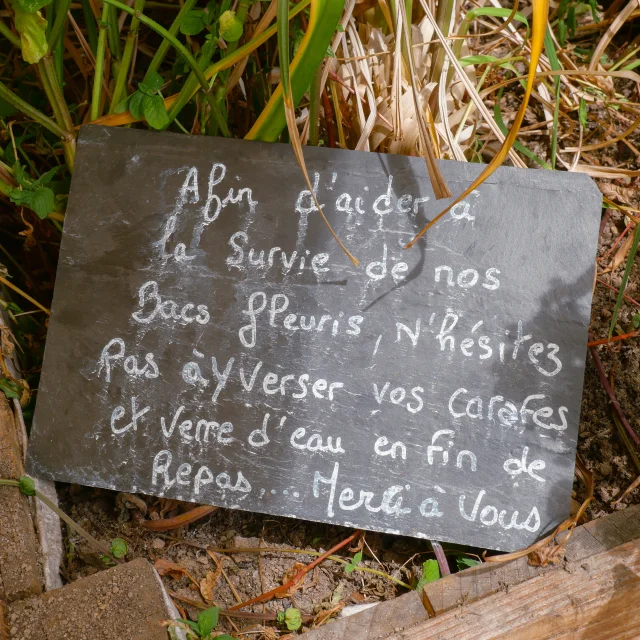 Afin d'aider à
la Survie de nos
Bacs fleuris, N'hésitez
Pas à y Verser vos Carafes
et Verre d'eau en Fin de
Repas.... Merci à Vous